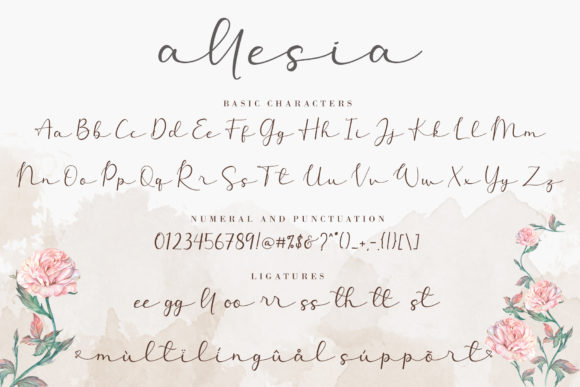 allesia
BASIC CHARACTERS
Aa Bb Cc Dd Ee Ff Gg Hh Ii Jj Kk Ll Mm
Nn Oo Pp Qq Rr Ss Tt Uu Vv Ww Xx Yy Zz
NUMERAL AND PUNCTUATION
0123456789!@#%$&?^*()_+,-.{|}[\]
LIGATURES
ee gg ll oo rr ss th tt st
mùltïlíngûâl súppõrt